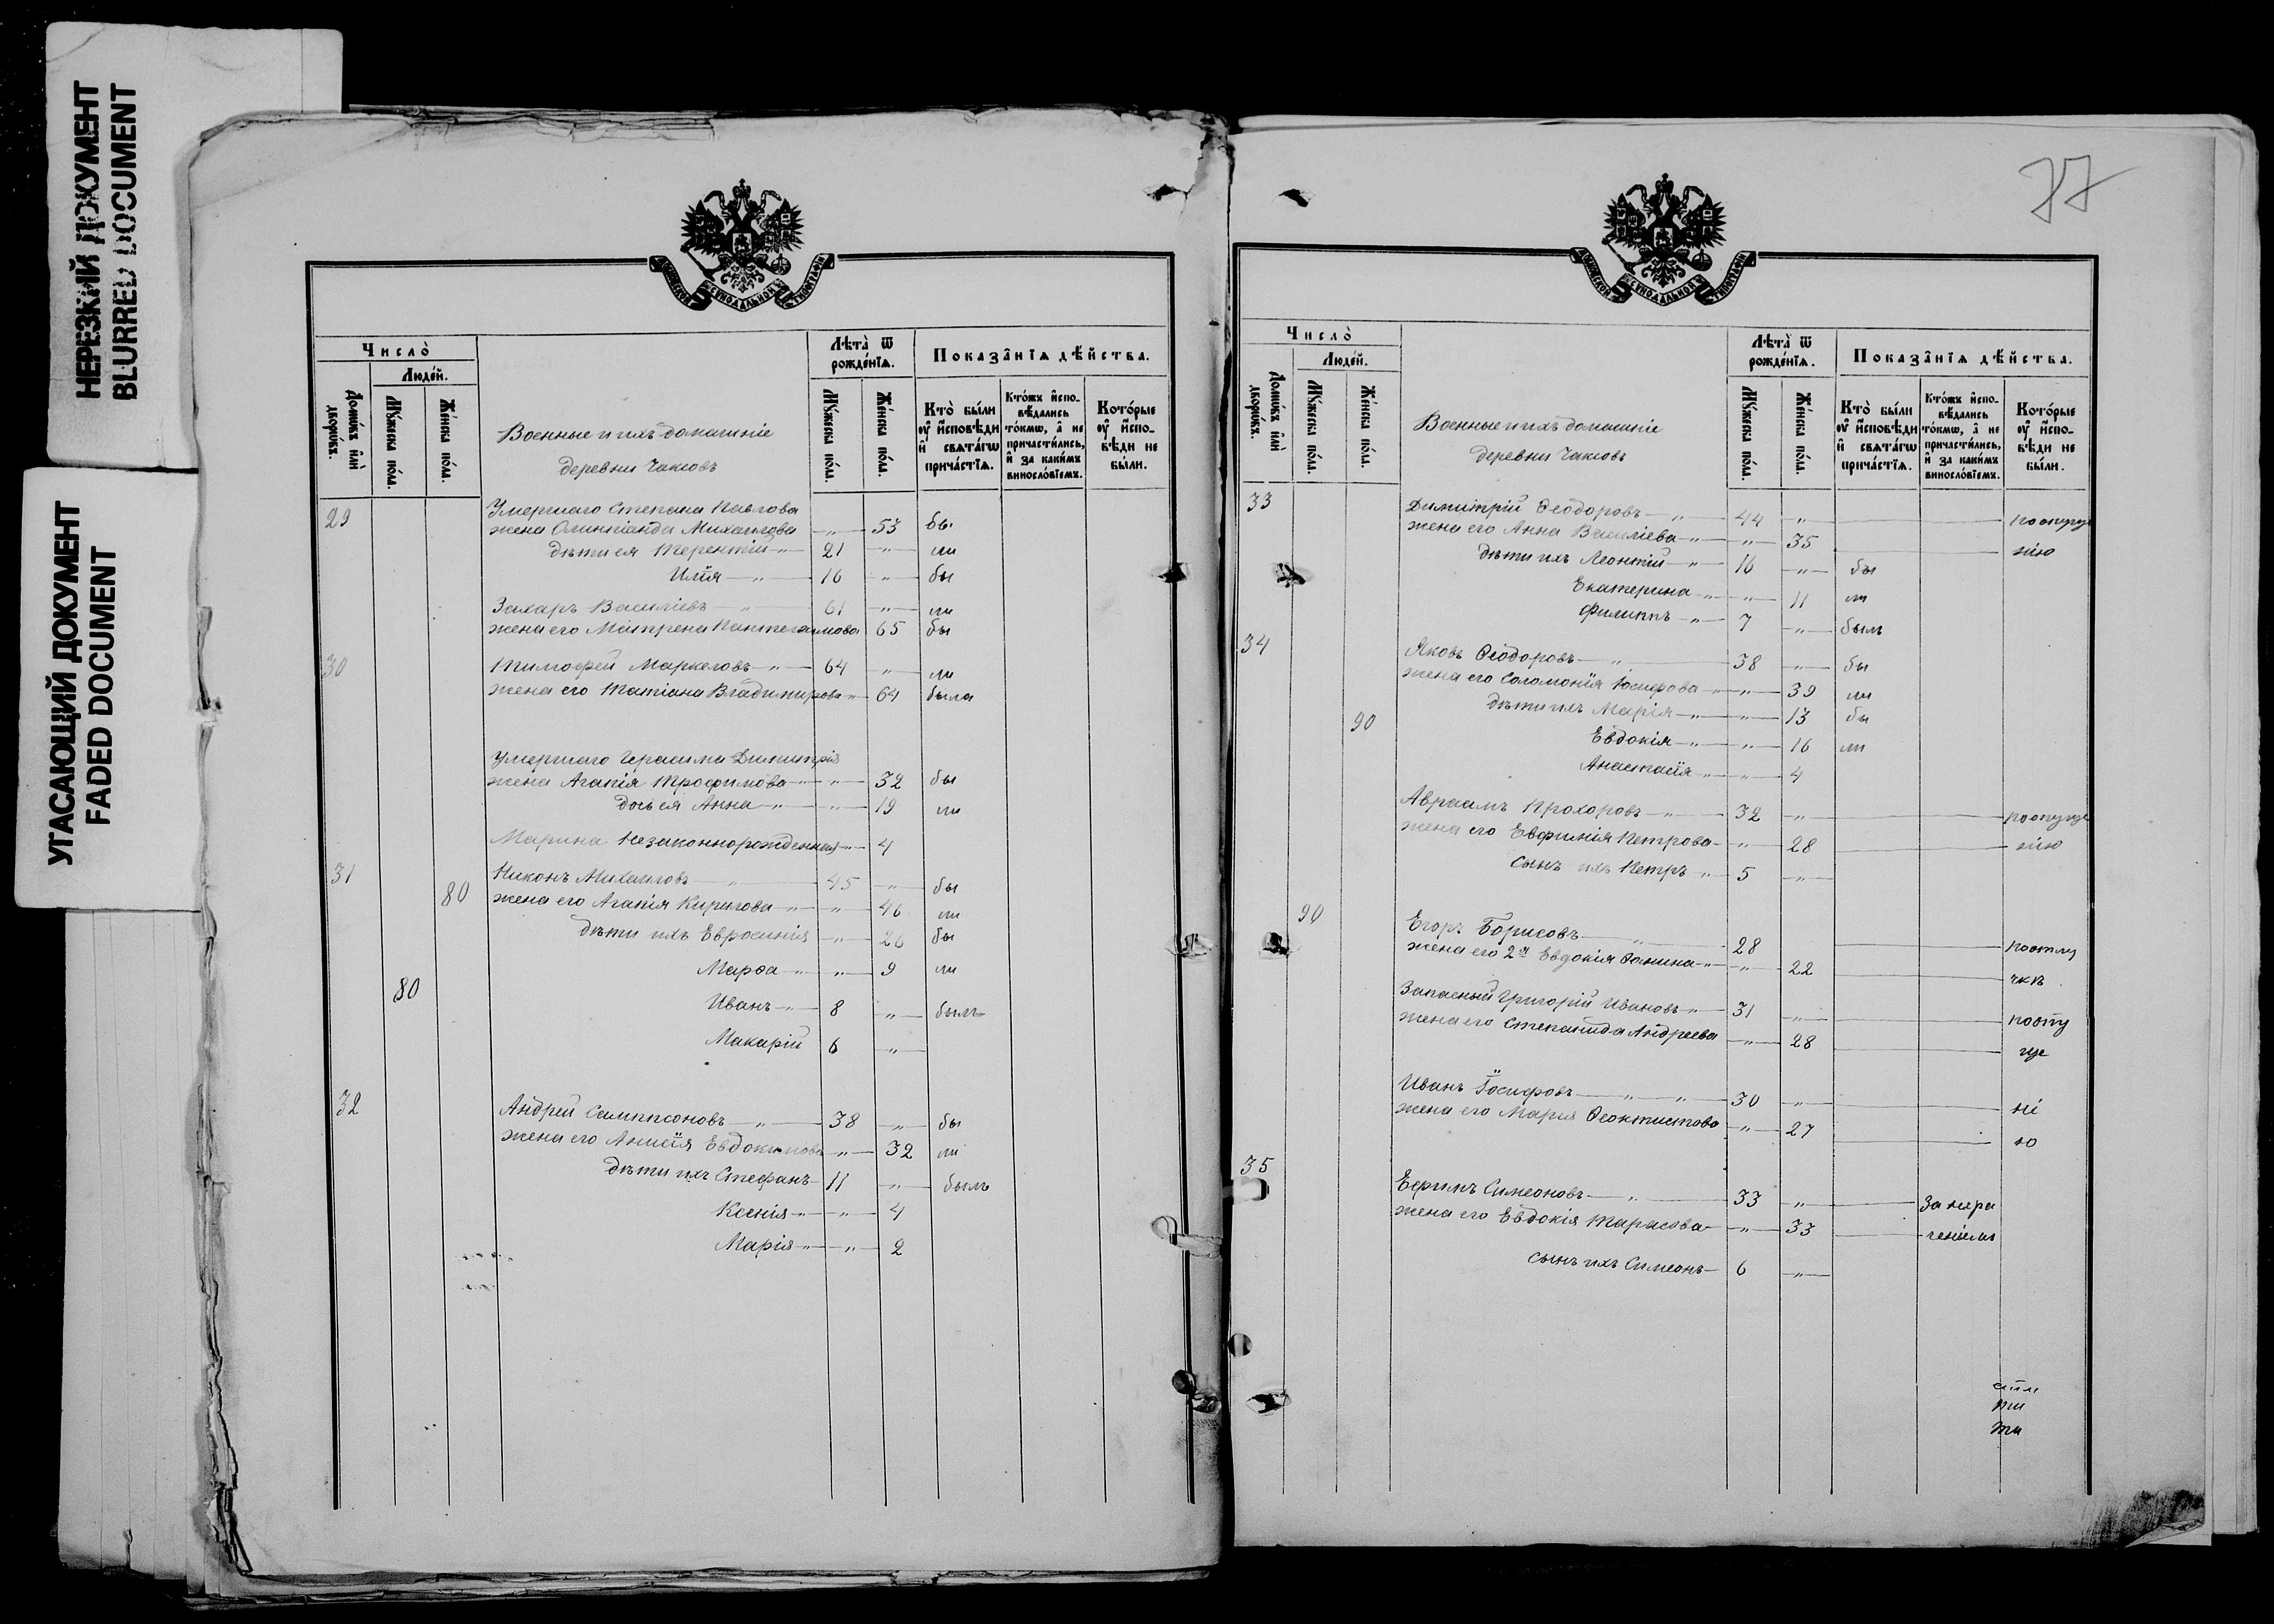 НЕРЕЗКИЙ ДОКУМЕНТ
BLURRED DOCUMENT
УГАСАЮЩИЙ ДОКУМЕНТ
FADED DOCUMENT
МОСКОВСКОЙ СѴНОДАЛЬНОЙ ТИПОГРАФІИ
Число̀
Людéй.
Домѡ́въ и҆лѝ дворѡ́въ.
Мꙋ́жеска пóла.
Жéнска пóла.
Военные и ихъ домашніе
деревни Чаковъ
Лѣта̀ ѿ рождéнїѧ.
Мꙋ́жеска пóла.
Жéнска пóла.
Показа̂нїѧ дѣ́йства.
Кто̀ бы́ли оу҆ и҆сповѣ́ди и҆ свѧта́гѡ прича́стїѧ.
Кто́жъ и҆спо-вѣ́дались то́кмѡ, а҆ не причасти́лись, и҆ за каки́мъ винослóвїемъ.
Кото́рые оу҆ и҆спо-вѣ́ди не бы́ли.
29 Умершаго Степана Павлова
жена Олимпіада Михаилова -"- 53 бы
дѣти ея Терентій -"- 21 -"- ли
Илія -"- 16 -"- бы
Захаръ Василіевъ -"- 61 -"- ли
жена его Матрена Пантелеимова 65 бы
30 Тимофей Маркеловъ -"- 64 -"- ли
жена его Татіана Владимирова -"- 64 была
Умершаго Герасима Димитрія
жена Агапія Трофимова -"- -"- 32 бы
дочь ея Анна -"- -"- 19 ли
Марина незаконнорожденная -"- 4
31 Никонъ Михаиловъ -"- 45 -"- бы
80 жена его Агапія Кирилова -"- -"- 46 ли
дѣти ихъ Евросинія -"- 26 бы
Марѳа -"- -"- 9 ли
80 Иванъ -"- 8 -"- былъ
Макарій 6 -"-
32 Андрей Сампсоновъ -"- 38 -"- бы
жена его Анисія Евдокимова -"- 32 ли
дѣти ихъ Стефанъ 11 -"- былъ
Ксенія -"- -"- 4
Марія -"- -"- 2
77
МОСКОВСКОЙ СѴНОДАЛЬНОЙ ТИПОГРАФІИ
Число̀
Людéй.
Домѡ́въ и҆лѝ дворѡ́въ.
Мꙋ́жеска пóла.
Жéнска пóла.
Военные и ихъ домашніе
деревни Чаковъ
Лѣта̀ ѿ рождéнїѧ.
Мꙋ́жеска пóла.
Жéнска пóла.
Показа̂нїѧ дѣ́йства.
Кто̀ бы́ли оу҆ и҆сповѣ́ди и҆ свѧта́гѡ прича́стїѧ.
Кто́жъ и҆спо-вѣ́дались то́кмѡ, а҆ не причасти́лись, и҆ за каки́мъ винослóвїемъ.
Кото́рые оу҆ и҆спо-вѣ́ди не бы́ли.
33 Димитрій Ѳеодоровъ -"- 44 -"-
жена его Анна Василіева -"- -"- 35
дѣти ихъ Леонтій -"- 16 -"- бы
Екатерина -"- -"- 11 ли
Филиппъ -"- 7 -"- былъ
34 Яковъ Ѳеодоровъ -"- 38 -"- бы
жена его Соломонія Іосифова -"- -"- 39 ли
90 дѣти ихъ Марія -"- -"- 13 бы
Евдокія -"- -"- 16 ли
Анастасія -"- -"- 4
Авраамъ Прохоровъ -"- 32 -"-
жена его Евфимія Петрова -"- 28
сынъ ихъ Петръ -"- 5 -"-
90 Егоръ Борисовъ -"- 28 поотлу
жена его 2я Евдокія Фомина -"- -"- 22 чкѣ
Запасный Григорій Ивановъ -"- 31 -"-
жена его Степанида Андреева -"- 28
Иванъ Іосифовъ -"- -"- 30 -"- ні
жена его Марія Ѳеоктистова -"- 27 ю
35 Ефимъ Симеоновъ -"- 33 -"- за нера
жена его Евдокія Тарасова -"- 33 ченіемъ
сынъ ихъ Симеонъ 6 -"-